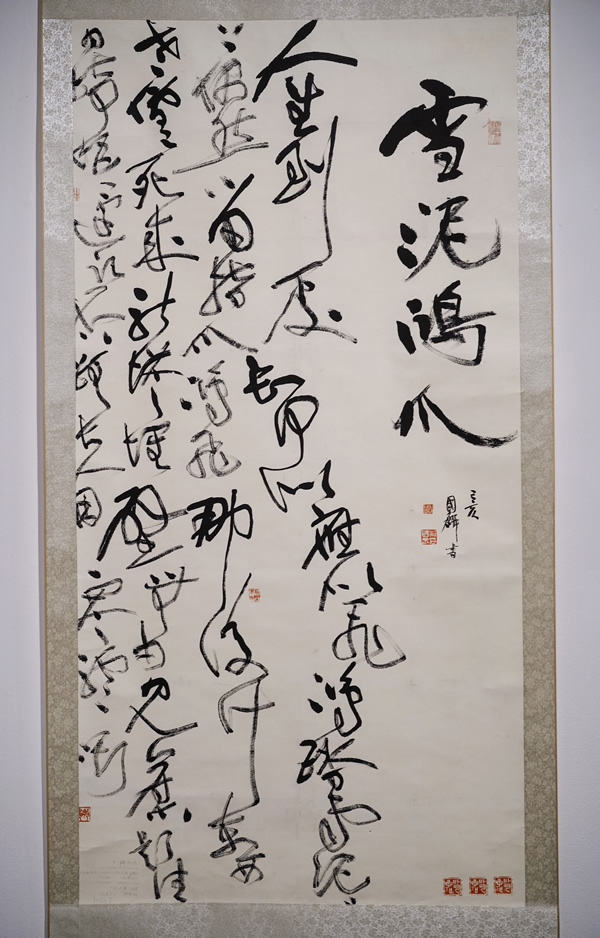 雪泥鴻爪
己亥
人生到處知何似應似飛鴻踏雪泥
〻上偶然留指爪鴻飛那復計東西
老僧已死成新塔壞壁無由見舊題往
日崎嶇還記否路長人困蹇驢嘶